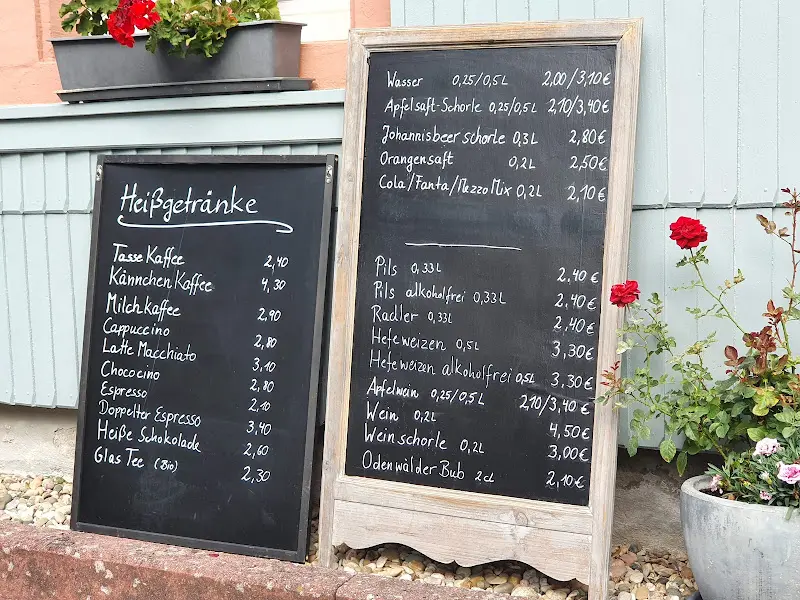 Heißgetränke
Tasse Kaffee 2,40
Kännchen Kaffee 4,30
Milchkaffee 2,90
Cappuccino 2,80
Latte Macchiato 3,10
Chococino 2,80
Espresso 2,10
Doppelter Espresso 3,40
Heiße Schokolade 2,60
Glas Tee (Bio) 2,30
Wasser 0,25/0,5L 2,00/3,10€
Apfelsaft-Schorle 0,25/0,5L 2,10/3,40€
Johannisbeerschorle 0,3L 2,80€
Orangensaft 0,2L 2,50€
Cola/Fanta/Mezzo Mix 0,2L 2,10€
Pils 0,33L 2,40€
Pils alkoholfrei 0,33L 2,40€
Radler 0,33L 2,40€
Hefeweizen 0,5L 3,30€
Hefeweizen alkoholfrei 0,5L 3,30€
Apfelwein 0,25/0,5L 2,10/3,40€
Wein 0,2L 4,50€
Weinschorle 0,2L 3,00€
Odenwälder Bub 2cl 2,10€